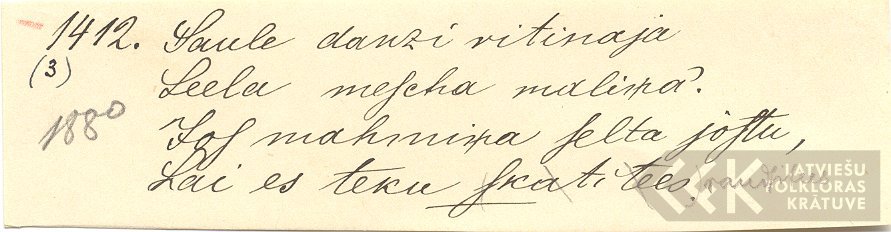 1412. Saule danzi ritinaja
(3) Leela mescha maliņa.
1880 Jos mahmiņa selta jostu,
Lai es teku skatitees
LATVIEŠU
FOLKLORAS
KRĀTUVE